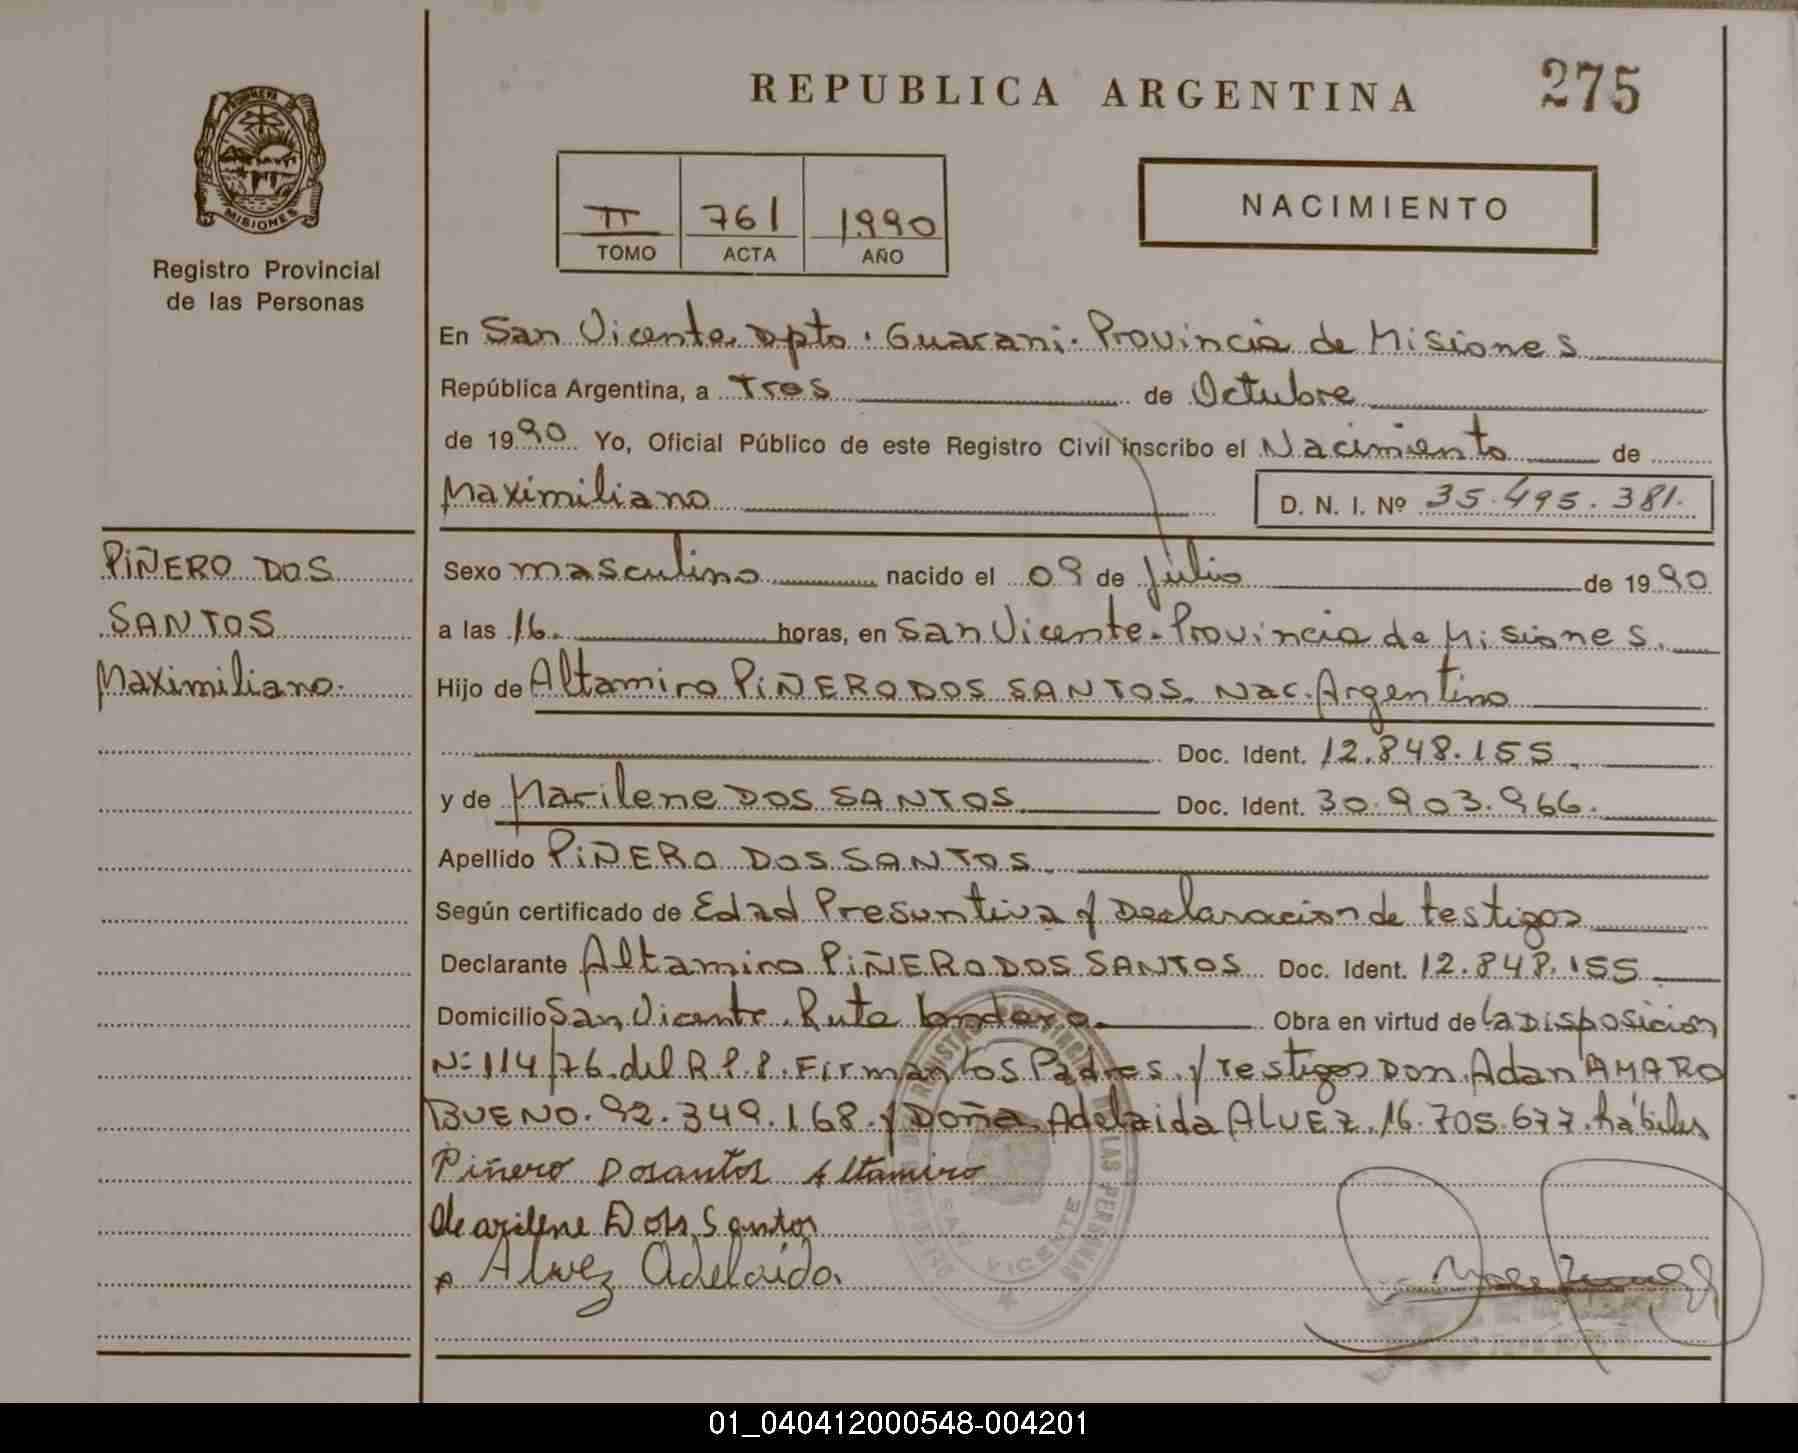 REPUBLICA ARGENTINA
275
PROVINCIA
MISIONES
Registro Provincial
de las Personas
II 761 1990
TOMO ACTA AÑO
NACIMIENTO
En San Vicente Dpto. Guarani. Provincia de Misiones
República Argentina, a Tres de Octubre
de 1990 Yo, Oficial Público de este Registro Civil inscribo el Nacimiento de
Maximiliano
D. N. I. Nº 35.495.381.
PIÑERO DOS
SANTOS
Maximiliano.
Sexo masculino nacido el 09 de Julio de 1990
a las 16. horas, en San Vicente. Provincia de Misiones.
Hijo de Altamiro PIÑERO DOS SANTOS. Nac. Argentino
Doc. Ident. 12.848.155.
y de Marilene DOS SANTOS Doc. Ident. 30.903.966.
Apellido PIÑERO DOS SANTOS
Según certificado de Edad Presuntiva y Declaracion de testigos
Declarante Altamiro PIÑERO DOS SANTOS Doc. Ident. 12.848.155
Domicilio San Vicente. Ruta Obra en virtud de la Disposicion
Nº 114/76. del R.P.P. Firman los Padres y Testigos Don Adan AMARO
BUENO. 92.349.168. y Doña Adelaida ALVEZ. 16.705.677. hábiles
Piñero Dosantos Altamiro
Marilene Dos Santos
Alvez Adelaida.
LAS PERSONAS
SAN VICENTE
01_040412000548-004201